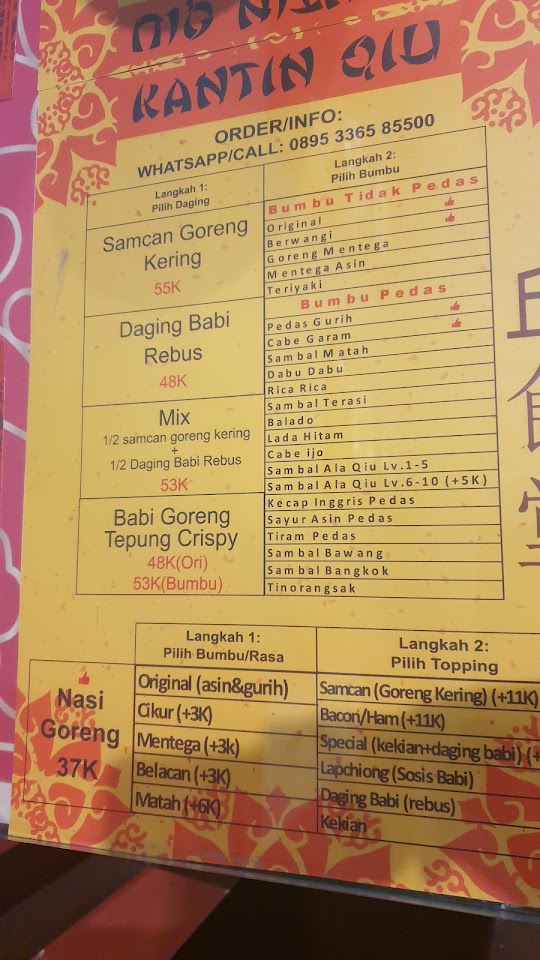 KANTIN QIU
ORDER/INFO:
WHATSAPP/CALL: 0895 3365 85500
Langkah 1:
Pilih Daging
Samcan Goreng
Kering
55K
Daging Babi
Rebus
48K
Mix
1/2 samcan goreng kering
+
1/2 Daging Babi Rebus
53K
Babi Goreng
Tepung Crispy
48K(Ori)
53K(Bumbu)
Langkah 2:
Pilih Bumbu
Bumbu Tidak Pedas
Original
Berwangi
Goreng Mentega
Mentega Asin
Teriyaki
Bumbu Pedas
Pedas Gurih
Cabe Garam
Sambal Matah
Dabu Dabu
Rica Rica
Sambal Terasi
Balado
Lada Hitam
Cabe ijo
Sambal Ala Qiu Lv.1-5
Sambal Ala Qiu Lv.6-10 (+5K)
Kecap Inggris Pedas
Sayur Asin Pedas
Tiram Pedas
Sambal Bawang
Sambal Bangkok
Tinorangsak
Nasi
Goreng
37K
Langkah 1:
Pilih Bumbu/Rasa
Original (asin&gurih)
Cikur (+3K)
Mentega (+3k)
Belacan (+3K)
Matah (+6K)
Langkah 2:
Pilih Topping
Samcan (Goreng Kering) (+11K)
Bacon/Ham (+11K)
Special (kekian+daging babi) (+
Lapchiong (Sosis Babi)
Daging Babi (rebus)
Kekian